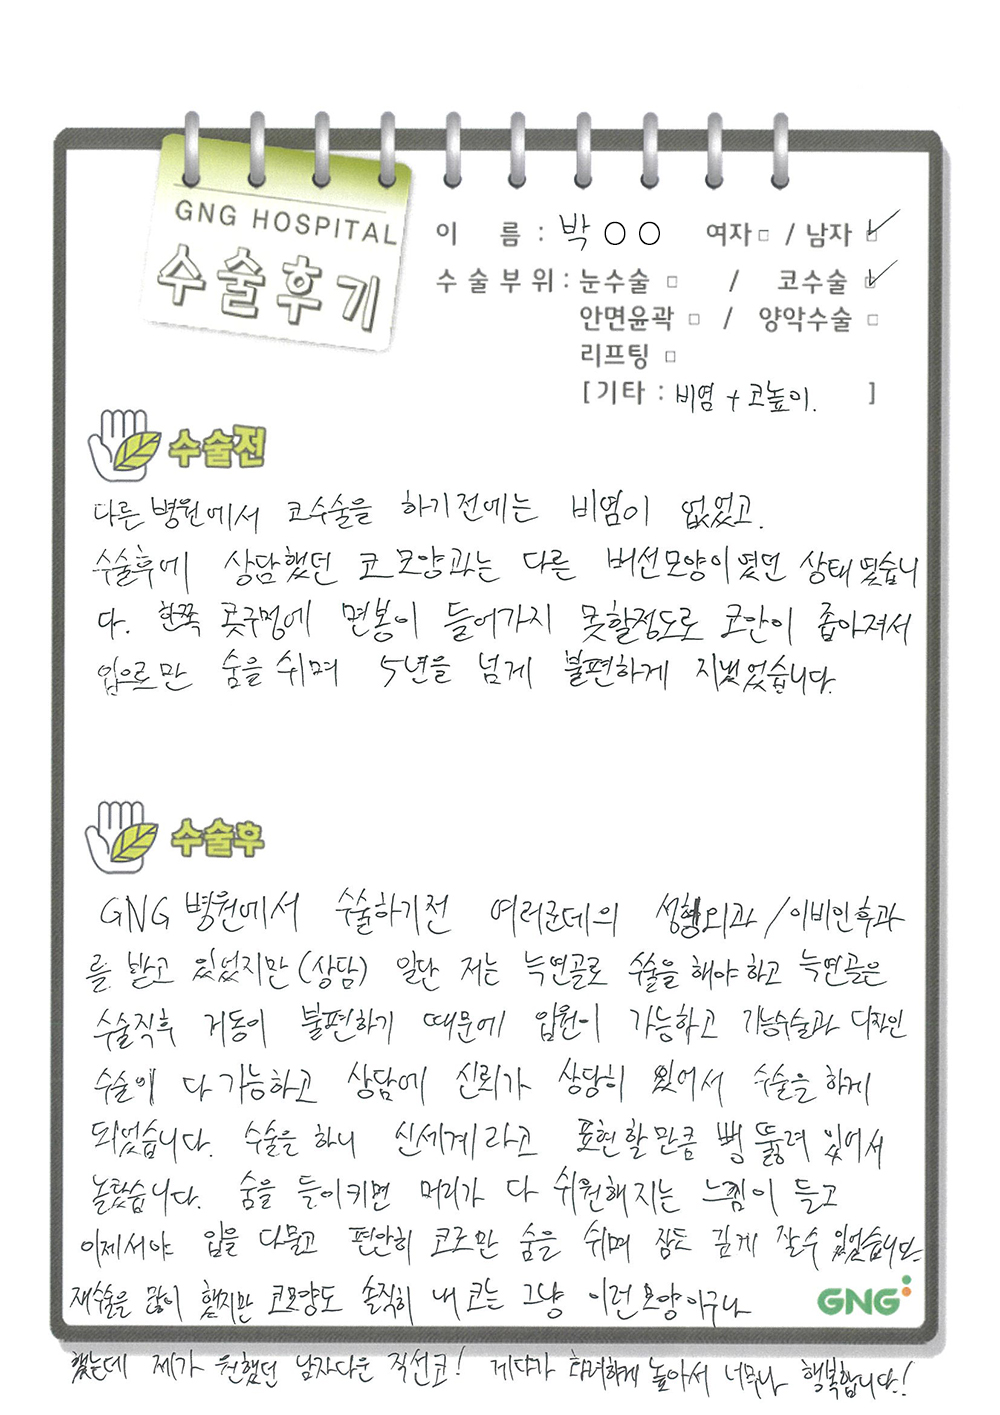 GNG HOSPITAL
수술후기
이 름 : 박 ○ ○ 여자□ / 남자☑
수술부위 : 눈수술 □ / 코수술 ☑
안면윤곽 □ / 양악수술 □
리프팅 □
[기타 : 비염 + 코높이. ]
수술전
다른 병원에서 코수술을 하기전에는 비염이 없었고.
수술후에 상담했던 코모양과는 다른 버선모양이였던 상태였습니
다. 한쪽 콧구멍에 면봉이 들어가지 못할정도로 코안이 좁아져서
입으로만 숨을 쉬며 5년을 넘게 불편하게 지냈었습니다.
수술후
GNG 병원에서 수술하기전 여러군데의 성형외과/이비인후과
를 받고 있었지만 (상담) 일단 저는 늑연골로 수술을 해야하고 늑연골은
수술직후 거동이 불편하기 때문에 입원이 가능하고 기능수술과 디자인
수술이 다 가능하고 상담에 신뢰가 상당히 있어서 수술을 하게
되었습니다. 수술을 하니 신세계라고 표현할만큼 뻥 뚫려 있어서
놀랐습니다. 숨을 들이키면 머리가 다 쉬원해지는 느낌이 들고
이제서야 입을 다물고 편안히 코로만 숨을 쉬며 잠도 깊게 잘수 있었습니다
재수술을 많이 했지만 코모양도 솔직히 내 코는 그냥 이런 모양이구나
GNG
했는데 제가 원했던 남자다운 직선코! 게다가 화려하게 높아서 너무나 행복합니다!